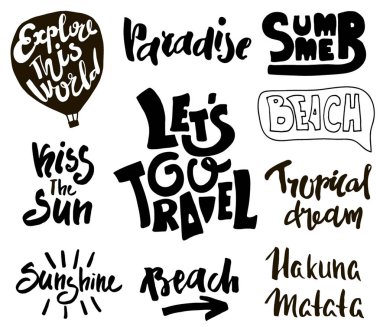 Explore
This
World
Paradise
SUM
MER
BEACH
LET'S
GO
TO
TRAVEL
Kiss
The
Sun
Tropical
dream
Sunshine
Beach
Hakuna
Matata